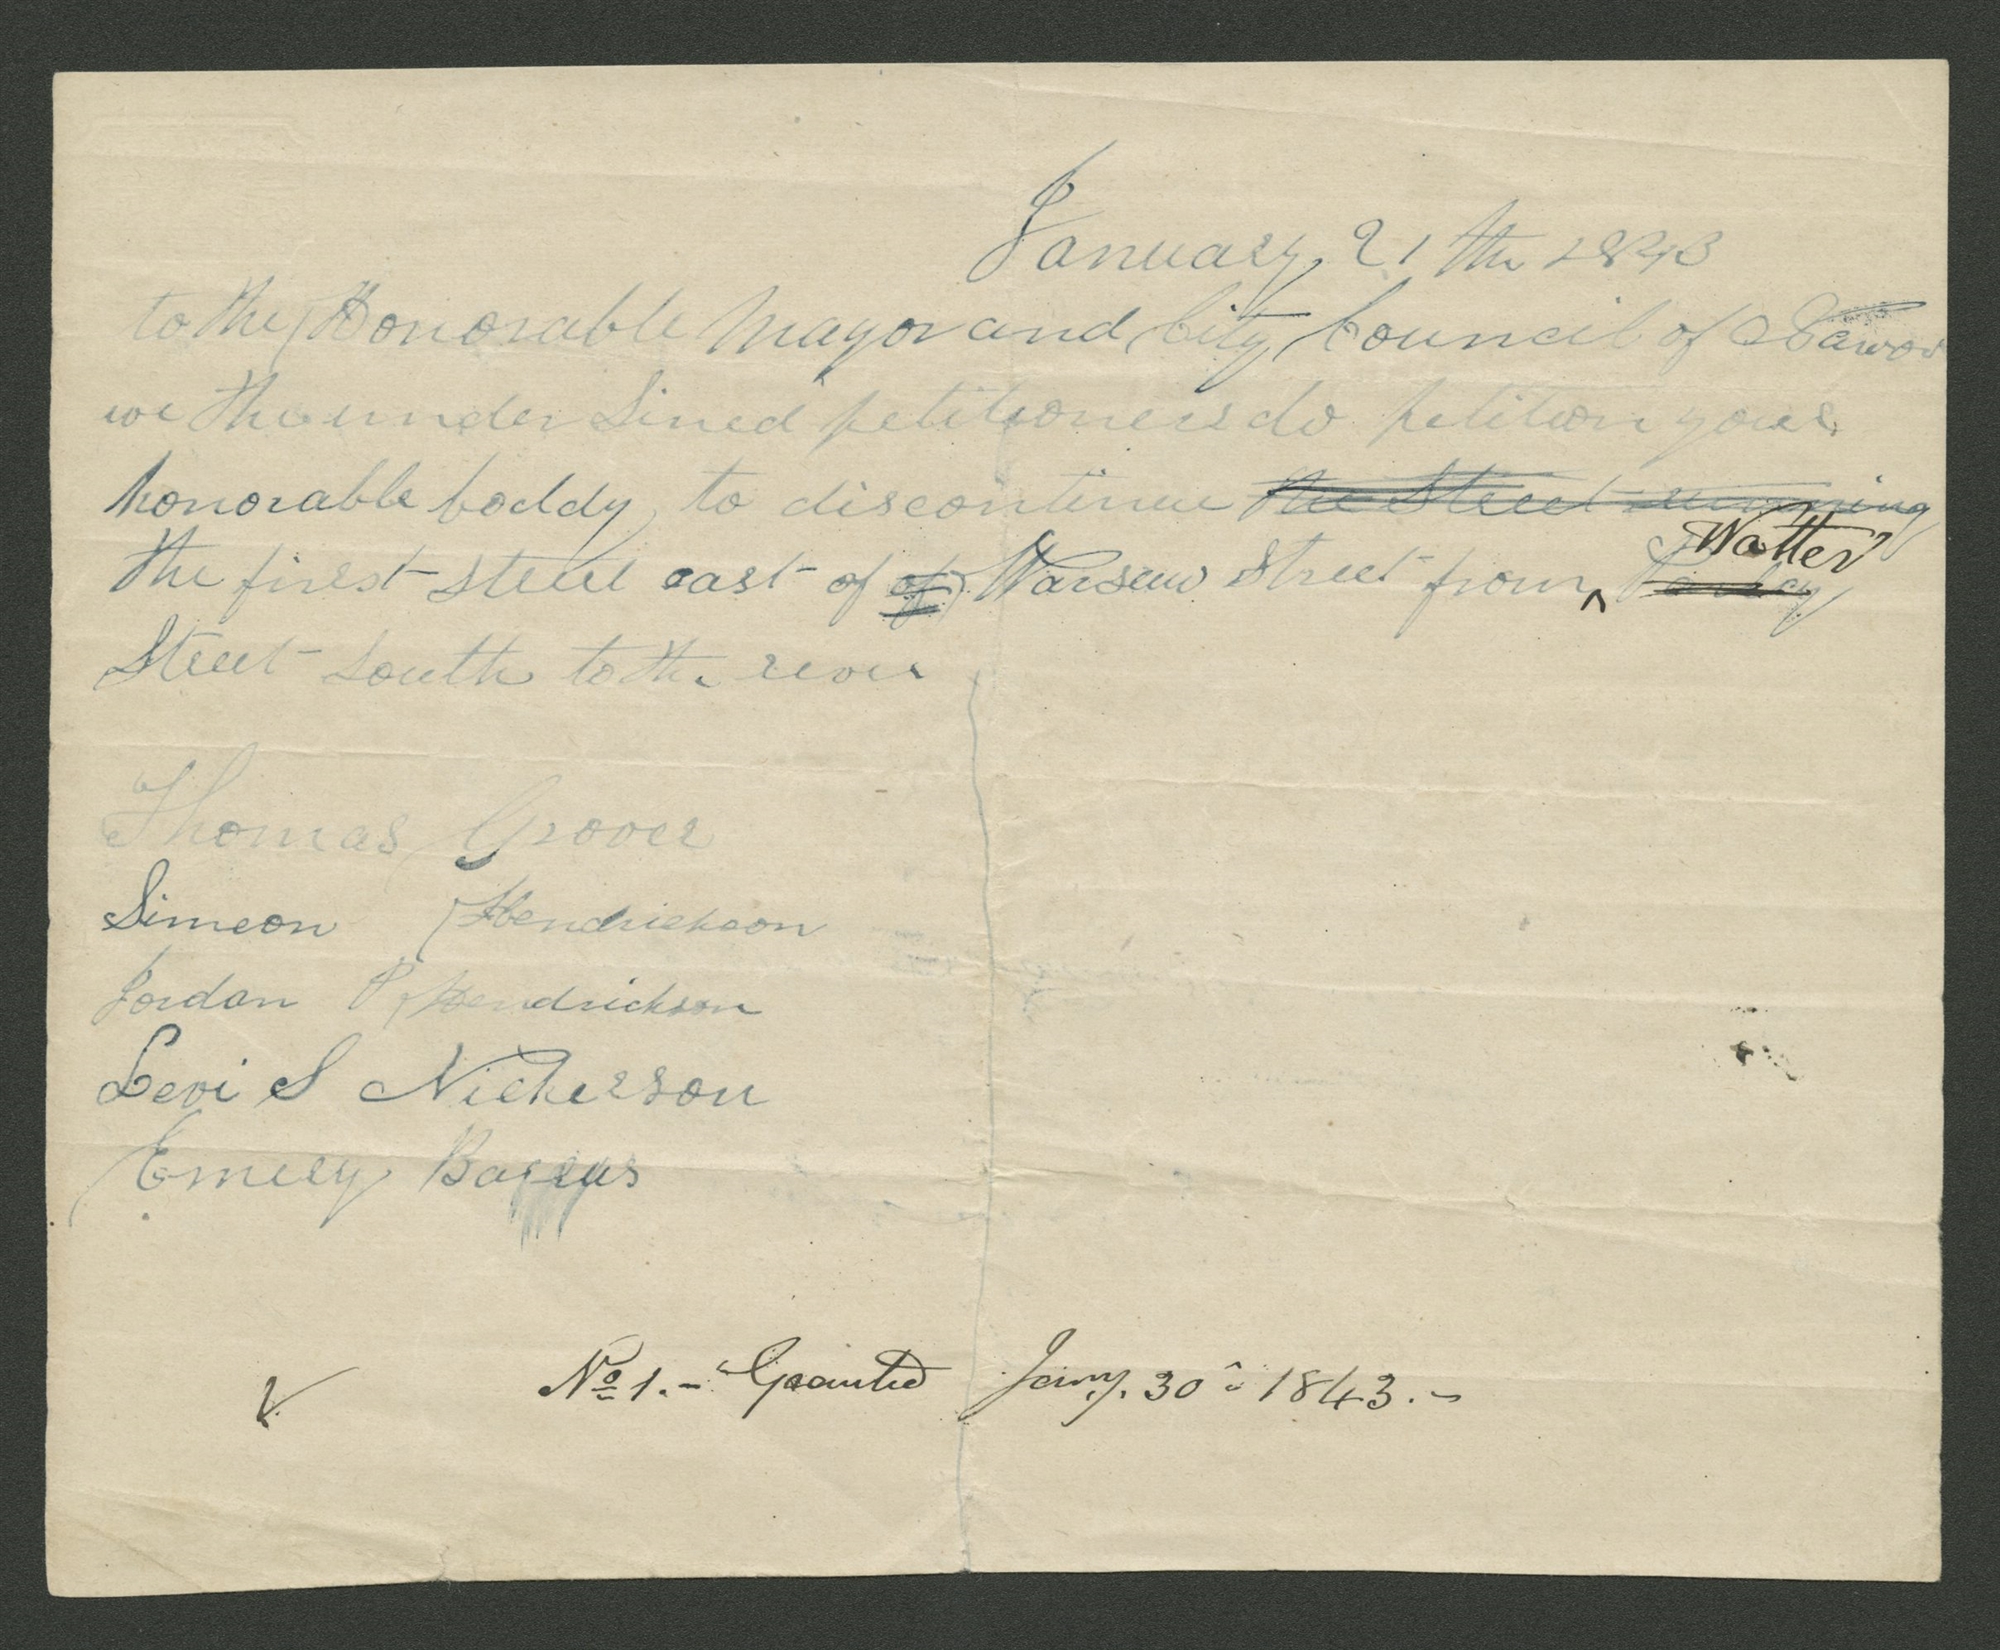 January 21 th 1843
to the Honorable Mayor and City Council of Nawoo
we the under Sined petitioners do petition your
honorable boddy to discontinue the Street running
the first street east of of Warsaw Street from ^ Parley Watter
Street south to the rever
Thomas Grover
Simeon Hendrickson
Jordan P Hendrickson
Levi S Nickerson
Emery Bargus
No 1. - Granted Jany. 30 - 1843. -